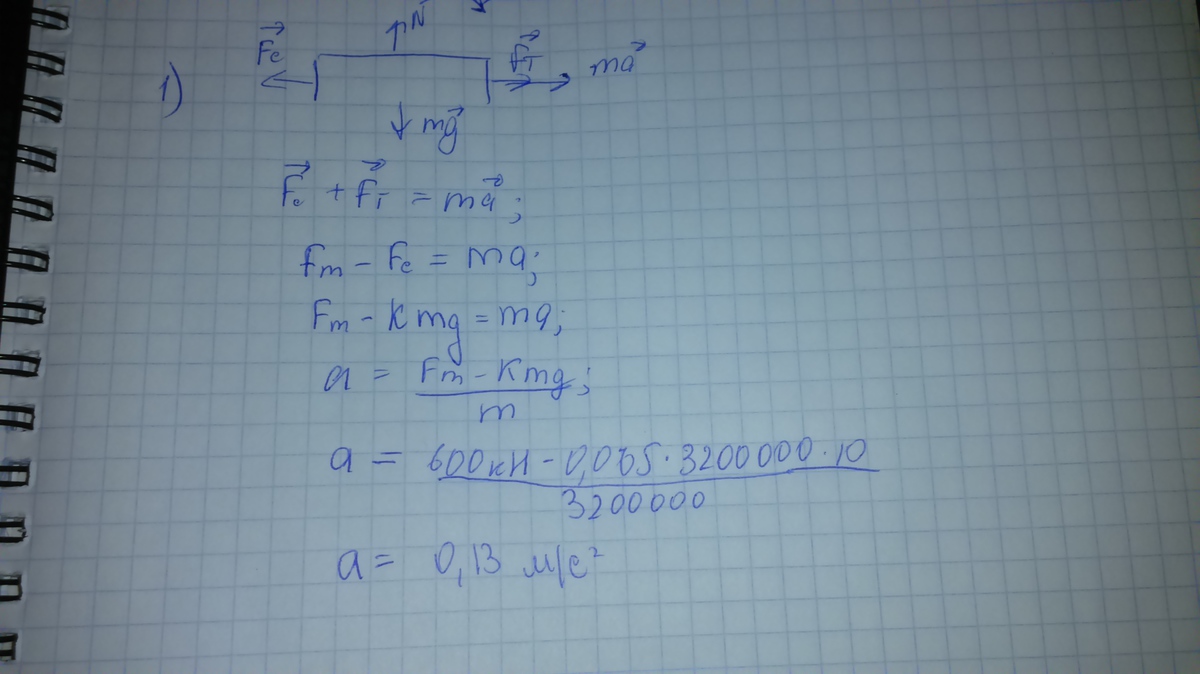 N
Fc
Fт
ma
1)
mg
Fc + Fт = ma;
Fm - Fc = ma;
Fm - Kmg = ma;
a = Fm - Kmg;
m
a = 600кН - 0,005·3200000·10
3200000
a = 0,13 м/с²